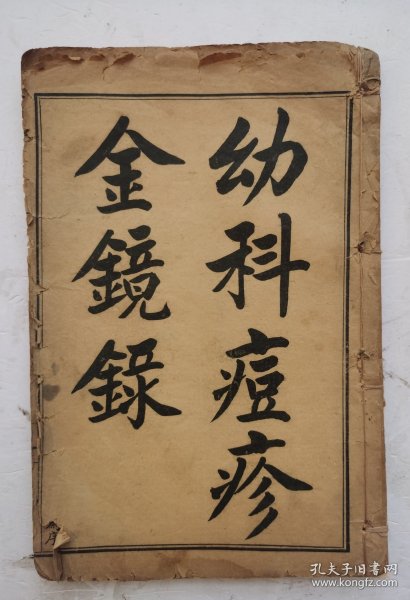 幼科痘疹
金鏡錄
孔夫子旧书网
www.kongfz.com